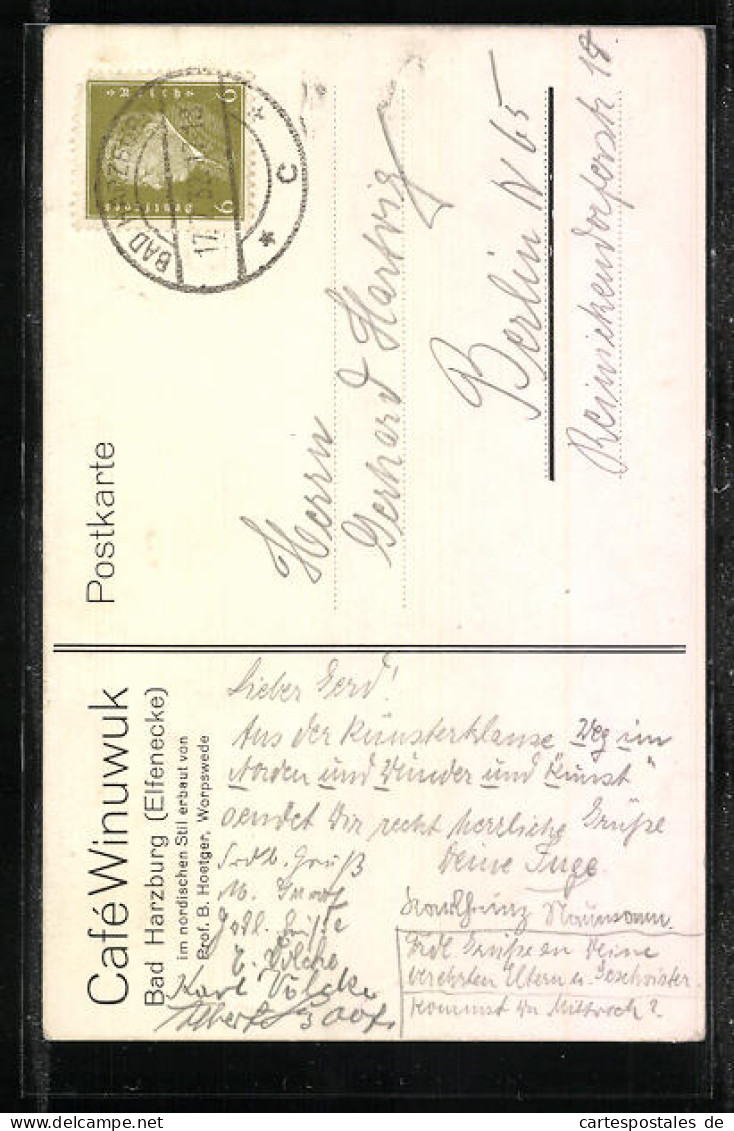 Café Winuwuk
Bad Harzburg (Elfenecke)
im nordischen Stil erbaut von
Prof. B. Hoetger, Worpswede
Lieber Gerd!
Aus der Künstlerklause „Weg im
Norden und Wunder und Kunst“
sendet Dir recht herzliche Grüße
Deine Inge.
Frdl. Gruß
M.
Frdl. Grüße
E. Völcke
Karl Völcke
Frdl. Grüße an Deine
verehrten Eltern u. Geschwister.
Kommst Du Mittwoch?
Postkarte
BAD HARZBURG
17.
C
6 6
Deutsches
Herrn
Gerhard Hartwig
Berlin N 65
Reinickendorferstr. 18.
cartespostales de